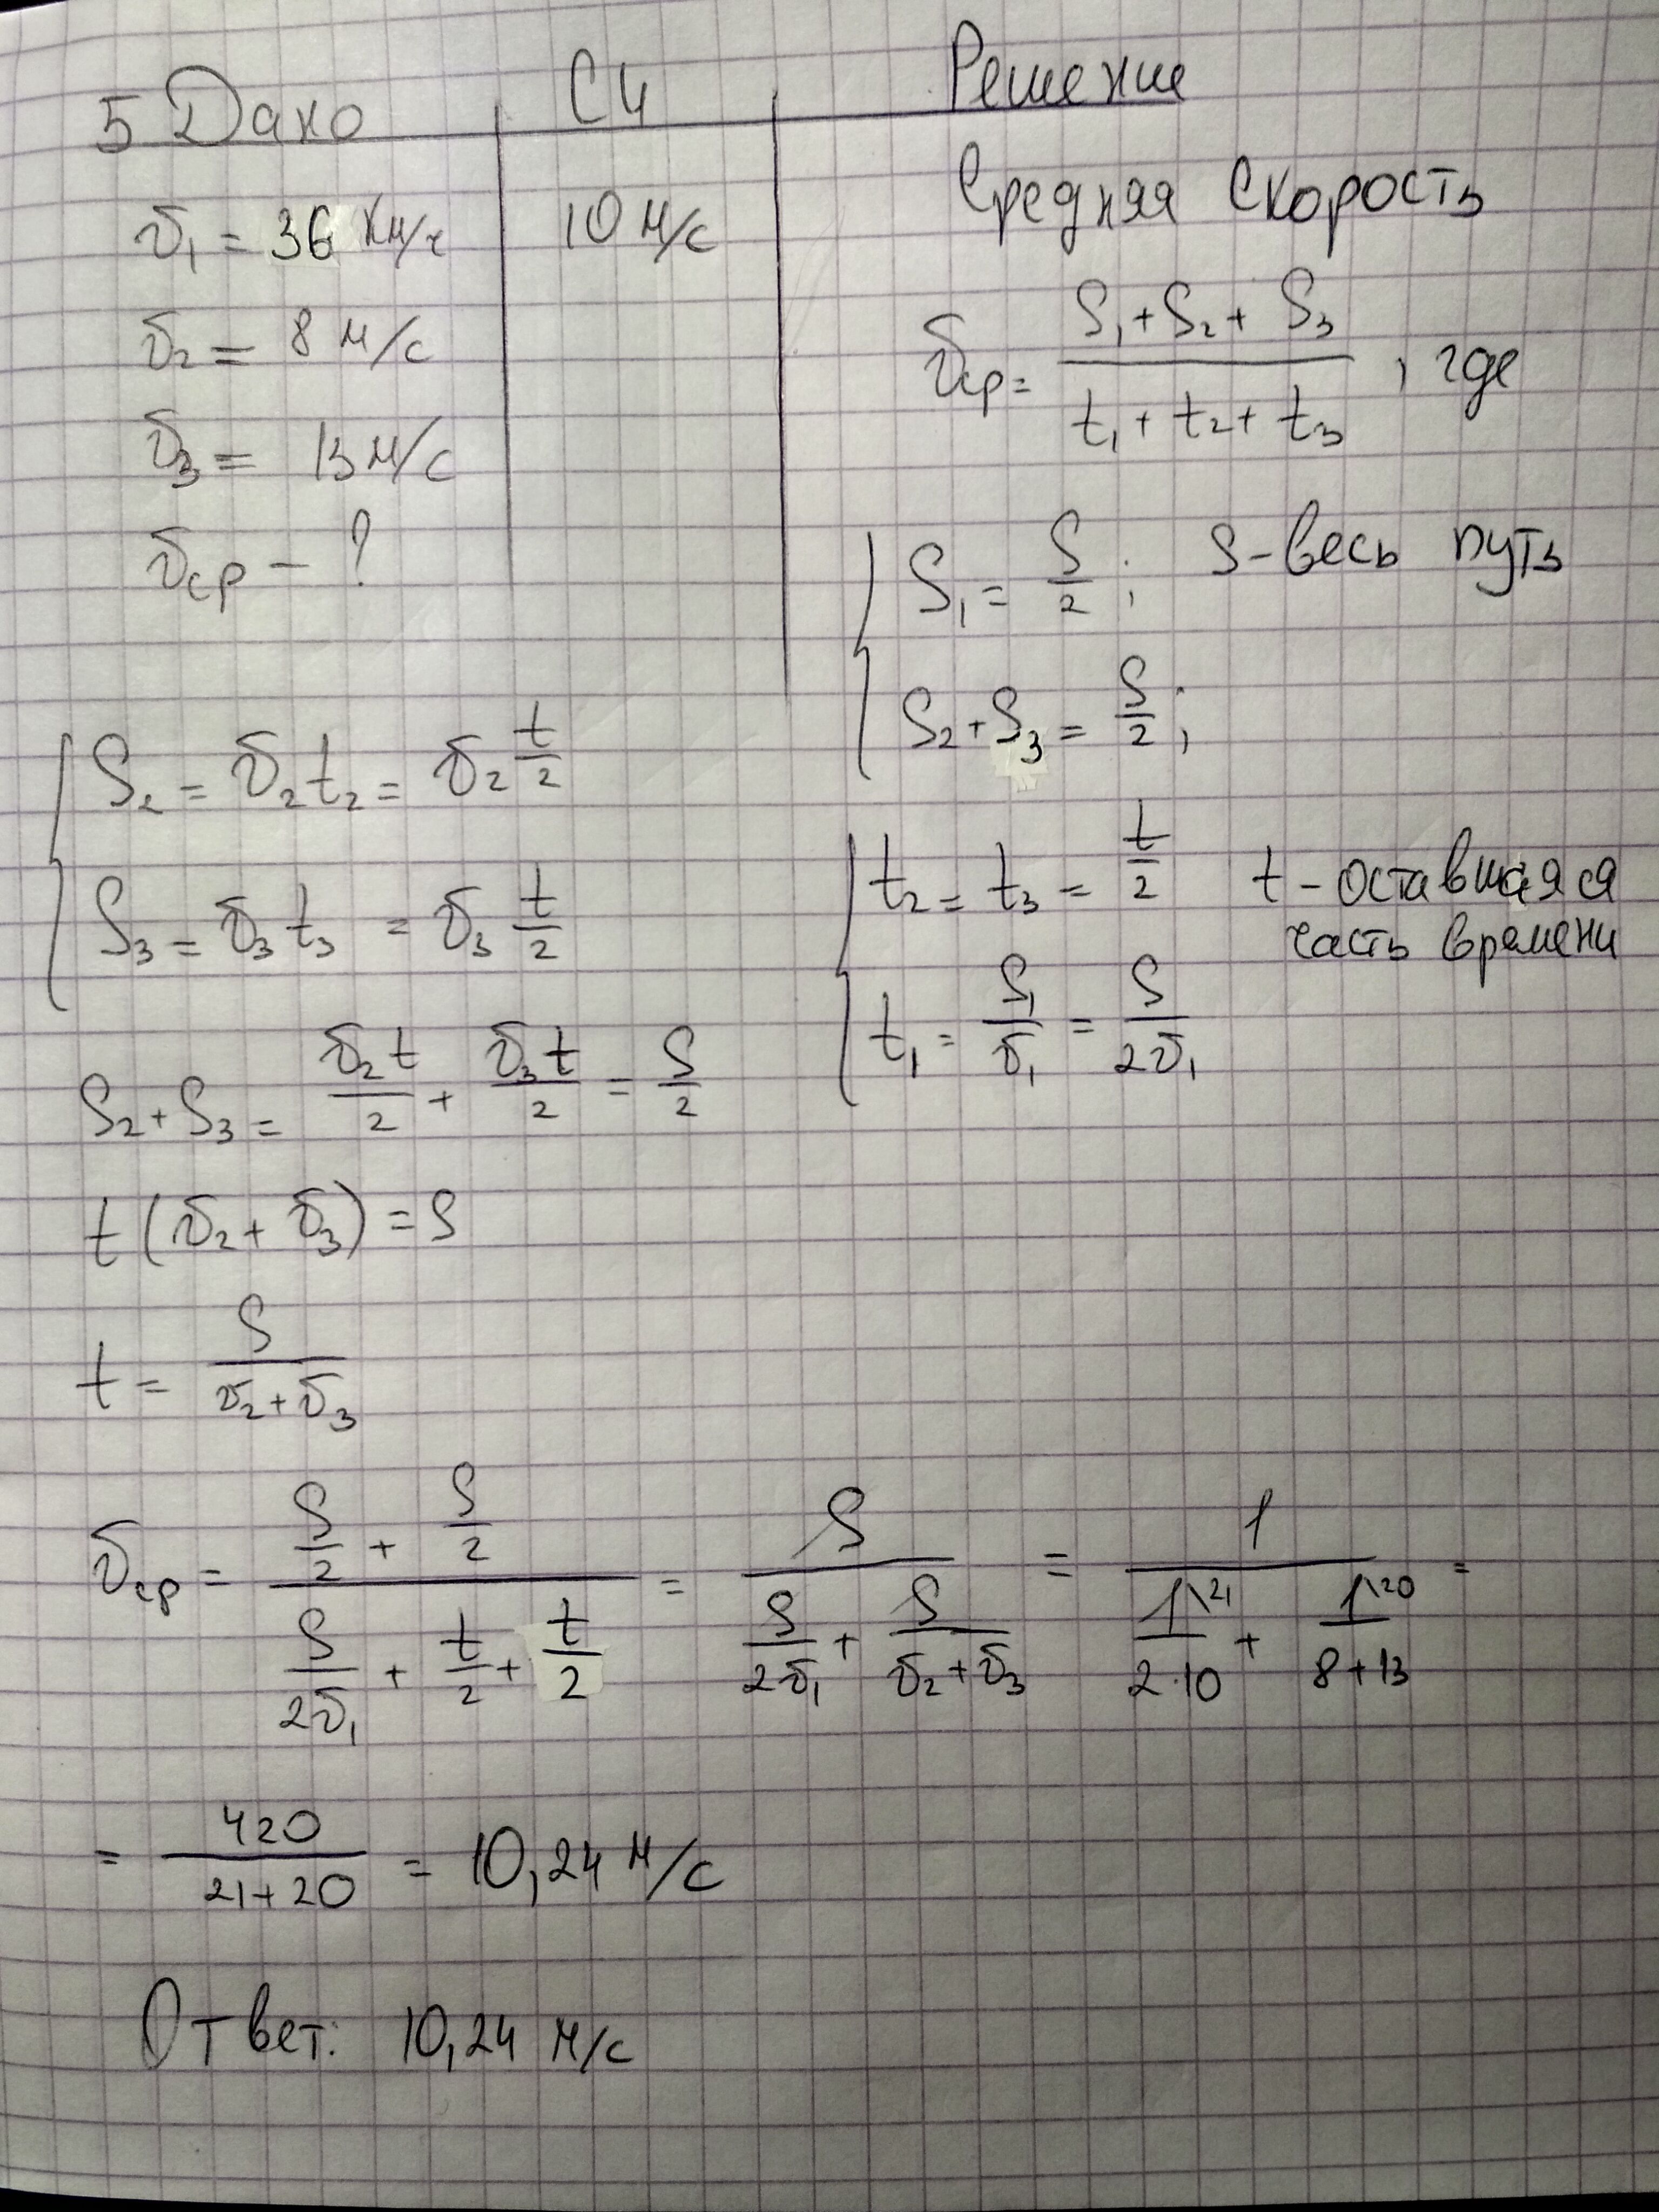 5 Дано СИ Решение
v₁ = 36 км/ч 10 м/с
v₂ = 8 м/с
v₃ = 13 м/с
vср - ?
Средняя скорость
vср = (S₁ + S₂ + S₃)/(t₁ + t₂ + t₃), где
S₁ = S/2; S - весь путь
S₂ + S₃ = S/2;
t₂ = t₃ = t/2 t - оставшаяся
часть времени
t₁ = S₁/v₁ = S/2v₁
S₂ = v₂t₂ = v₂ t/2
S₃ = v₃t₃ = v₃ t/2
S₂ + S₃ = v₂t/2 + v₃t/2 = S/2
t(v₂ + v₃) = S
t = S/(v₂ + v₃)
vср = (S/2 + S/2)/(S/2v₁ + t/2 + t/2) = S/(S/2v₁ + S/(v₂ + v₃)) = 1/(1\21/2·10 + 1\20/8+13) =
= 420/(21+20) = 10,24 м/с
Ответ: 10,24 м/с